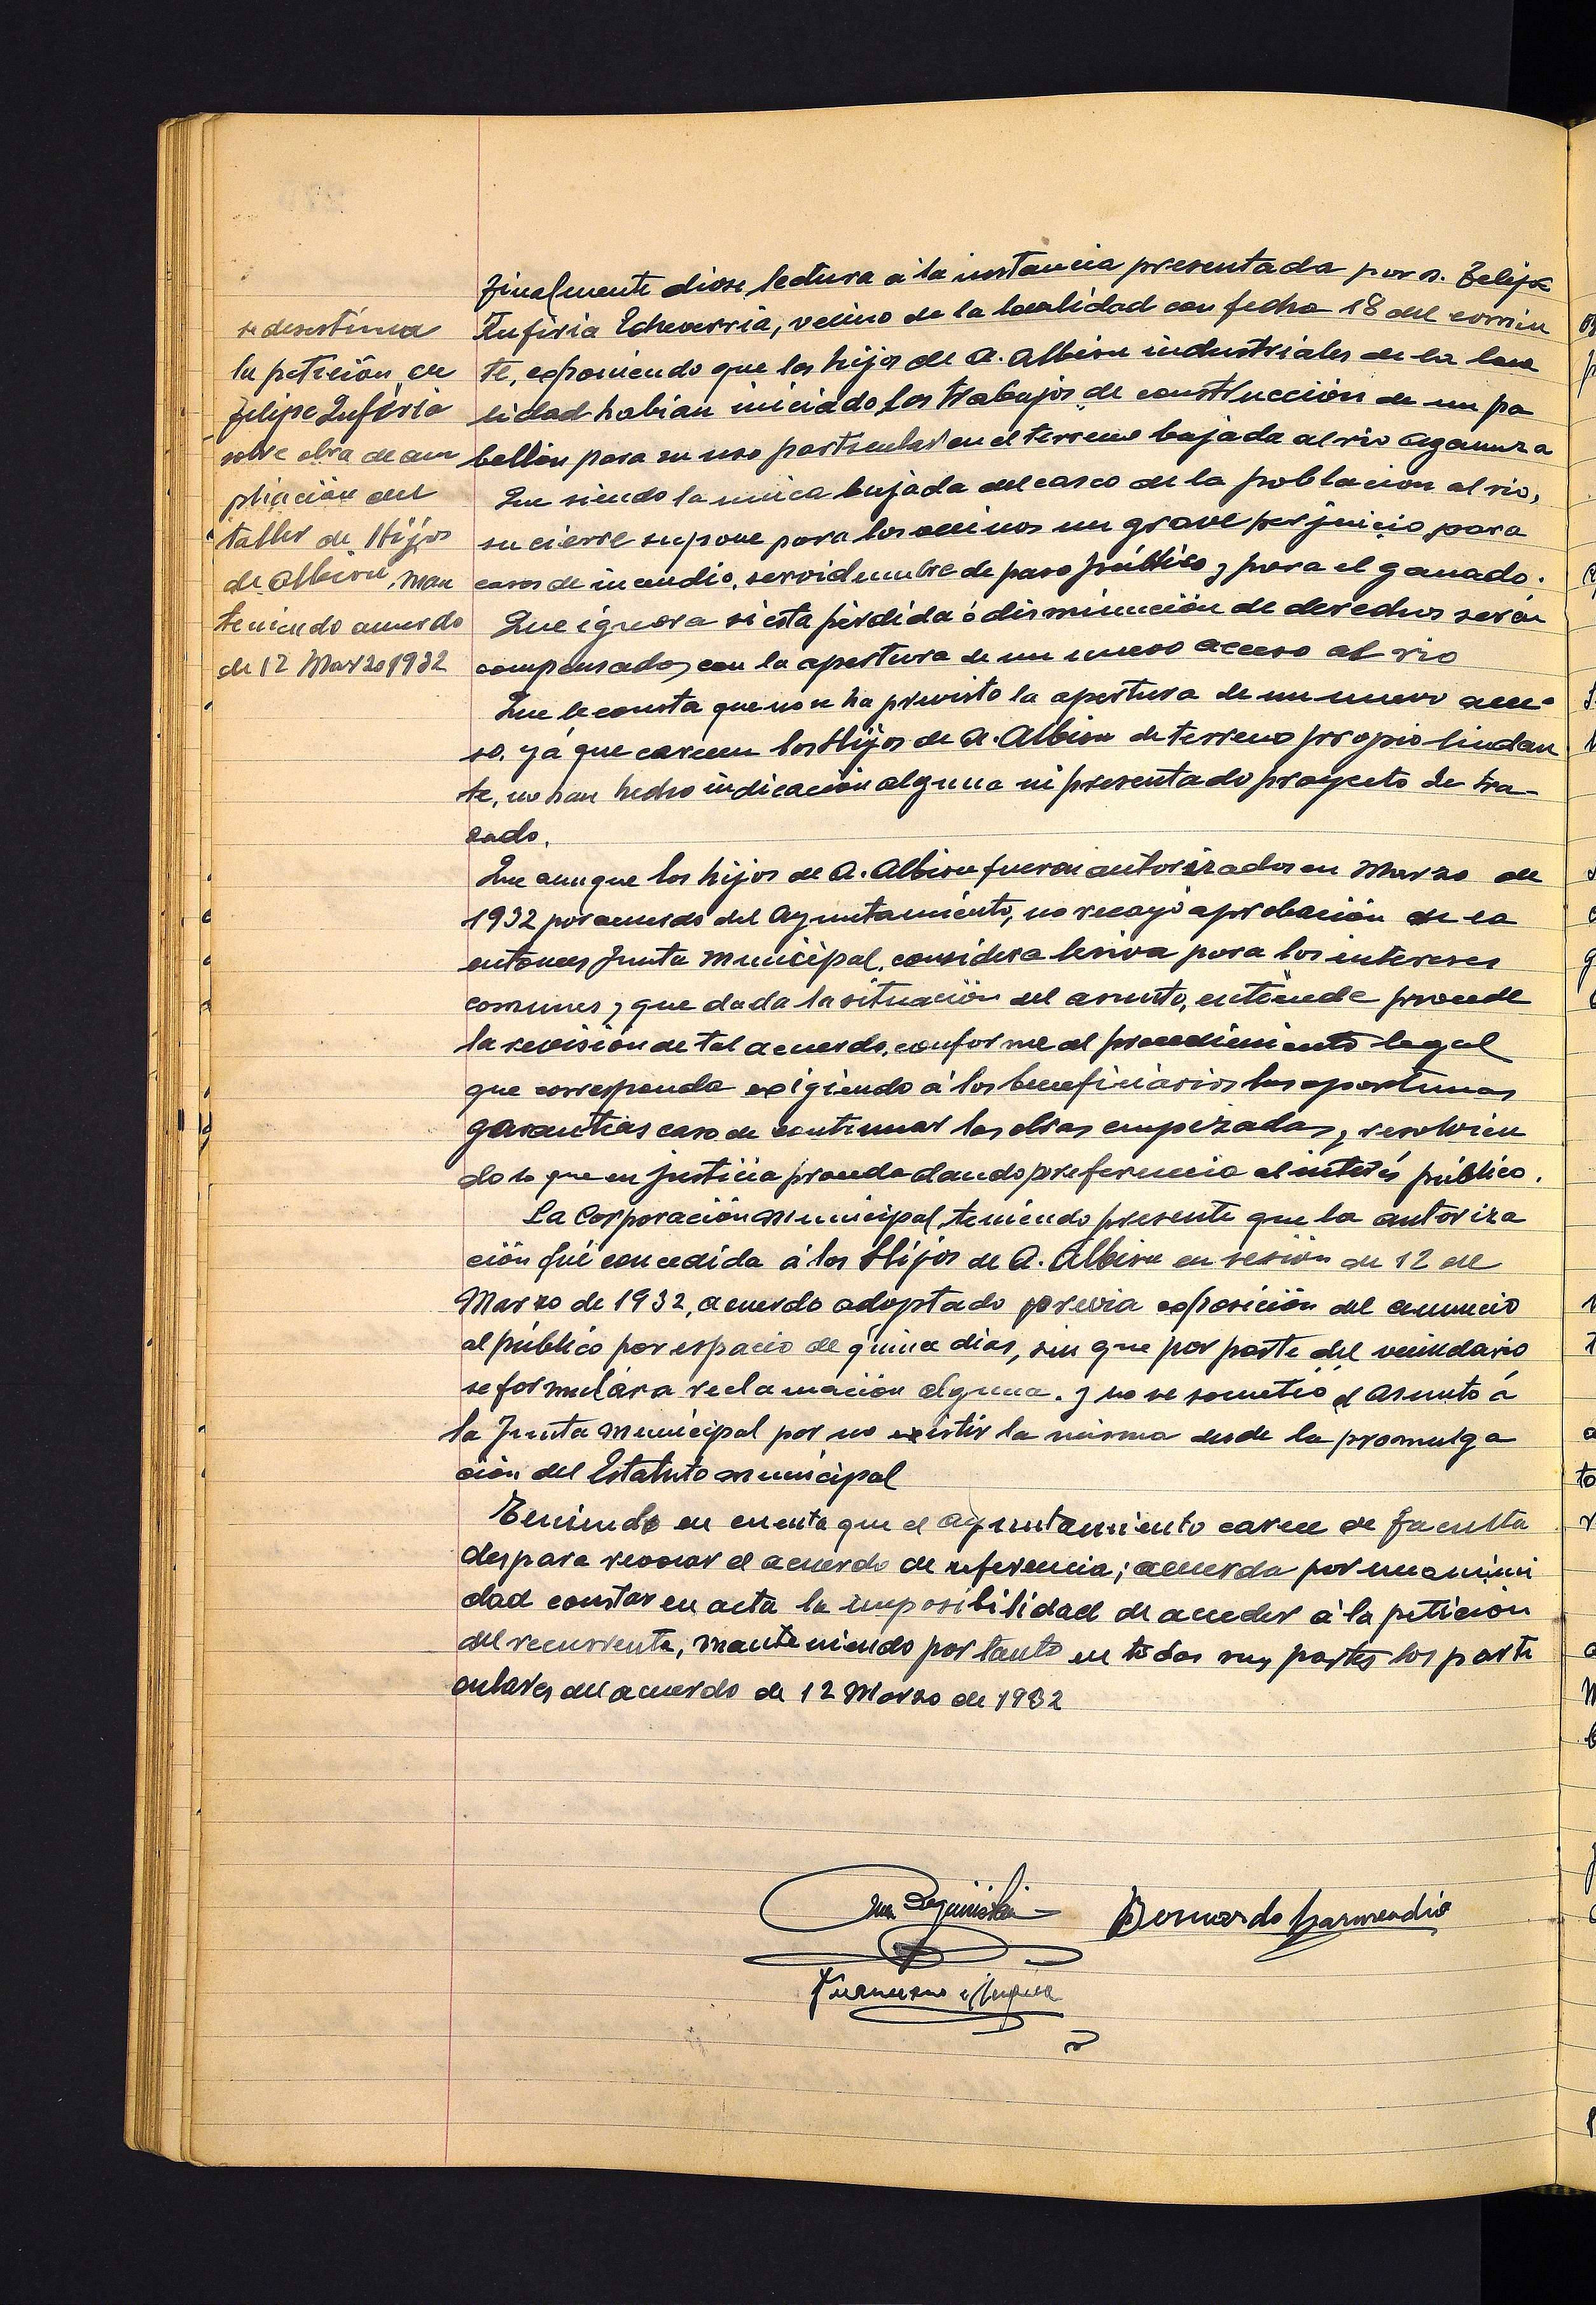 se desestima
la petición de
Felipe Inñiria
sobre obra de am
pliación del
taller de Hijos
de Albisu, man
teniendo acuerdo
de 12 Marzo 1932
Finalmente diose lectura á la instancia presentada por D. Felipe
Echeverria, vecino de la localidad con fecha 18 del corrien
te, exponiendo que los hijos de A. Albisu industriales de la loca
lidad habian iniciado los trabajos de construcción de un pa
bellón para su uso particular en el terreno bajada al rio Agaunza
Que siendo la unica bajada del casco de la poblacion al rio,
su cierre supone para los vecinos un grave perjuicio para
casos de incendio, servidumbre de paso público y para el ganado.
Que ignora si esta pérdida ó disminución de derechos serán
compensados con la apertura de un nuevo acceso al rio
Que le consta que no se ha previsto la apertura de un nuevo acce-
so, yá que carecen los Hijos de A. Albisu de terreno propio lindan
te, no han hecho indicación alguna ni presentado proyecto de tra-
zado.
Que aunque los hijos de A. Albisu fueron autorizados en Marzo de
1932 por acuerdo del Ayuntamiento, no recayó aprobación de la
entonces Junta Municipal, considera lesiva para los intereses
comunes y que dada la situación del asunto, entiende procede
la revisión de tal acuerdo, conforme al procedimiento legal
que corresponda exigiendo á los beneficiarios las oportunas
garantias caso de continuar las obras empezadas, y resolvien
do lo que en justicia proceda dando preferencia al interés público.
La Corporación Municipal, teniendo presente que la autoriza
ción fué concedida á los Hijos de A. Albisu en sesión de 12 de
Marzo de 1932, acuerdo adoptado previa exposición del anuncio
al público por espacio de quince dias, sin que por parte del vecindario
se formulára reclamación alguna. y no se sometió el asunto á
la Junta Municipal por no existir la misma desde la promulga
ción del Estatuto municipal
Teniendo en cuenta que el ayuntamiento carece de faculta
des para revocar el acuerdo de referencia; acuerda por unanimi
dad constar en acta la imposibilidad de acceder á la petición
del recurrente, manteniendo por tanto en todas sus partes los parti
culares del acuerdo de 12 Marzo de 1932
Bernardo Garmendia